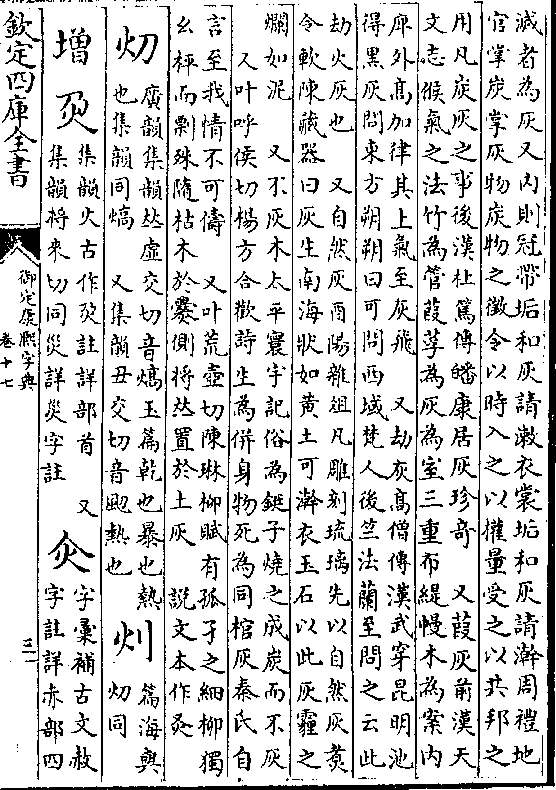 滅者為灰又内則冠帶垢和灰請漱衣裳垢和灰請澣周禮地
官掌炭掌灰物炭物之徵令以時入之以權量受之以共邦之
用凡炭灰之事後漢杜篤傳皤康居灰珍竒　又葭灰前漢天
文志候氣之法竹為管葭莩為灰為室三重布緹幔木為案内
庳外髙加律其上氣至灰飛　又劫灰髙僧傳漢武穿昆明池
得黒灰問東方朔朔曰可問西域梵人後竺法蘭至問之云此
劫火灰也　又自然灰酉陽雜俎凡雕刻琉璃先以自然灰煑
令軟陳藏器曰灰生南海狀如黄土可澣衣玉石以此灰霾之
爛如泥　又不灰木太平寰宇記俗為鋌子燒之成炭而不灰
又叶呼侯切楊方合歡詩生為併身物死為同棺灰秦氏自
言至我情不可儔　又叶荒壺切陳琳柳賦有孤孑之細柳獨
幺枰而剽殊隨枯木於㸑側將𠀤置於土灰　説文本作
灱
廣韻集韻𠀤虚交切音熇玉篇乾也暴也熱
也集韻同熇　又集韻丑交切音颵熱也
灲
篇海與
灱同
増
集韻火古作　註詳部首　又
集韻將來切同災詳災字註
灻
字彙補古文赦
字註詳赤部四
欽定四庫全書
御定康熙字典
卷十七
三